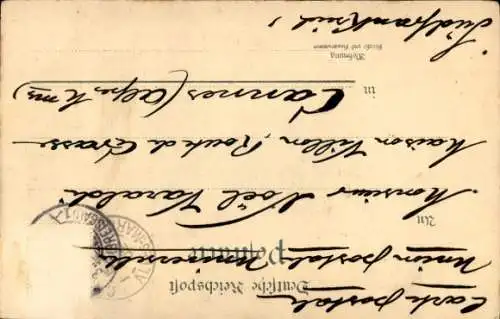 Deutsche Reichspost
Postkarte
Carte postale
Union postale Universelle
An
Monsieur Noël Varaldi
Maison Villon, Route de Grasse
in
Cannes (Alpes. M mes)
Wohnung
Straße und Hausnummer
(Südfrankreich)